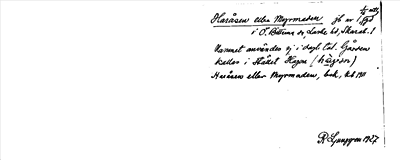 Haråsen eller Myrmaden jb av
i Ö. Bitterna sn, Laske hd, Skarab. l
Namnet användes ej i dagl. tal. Gården
kallas i stället Hagen
Haråsen eller Myrmaden, bok,
R Ljunggren 1927